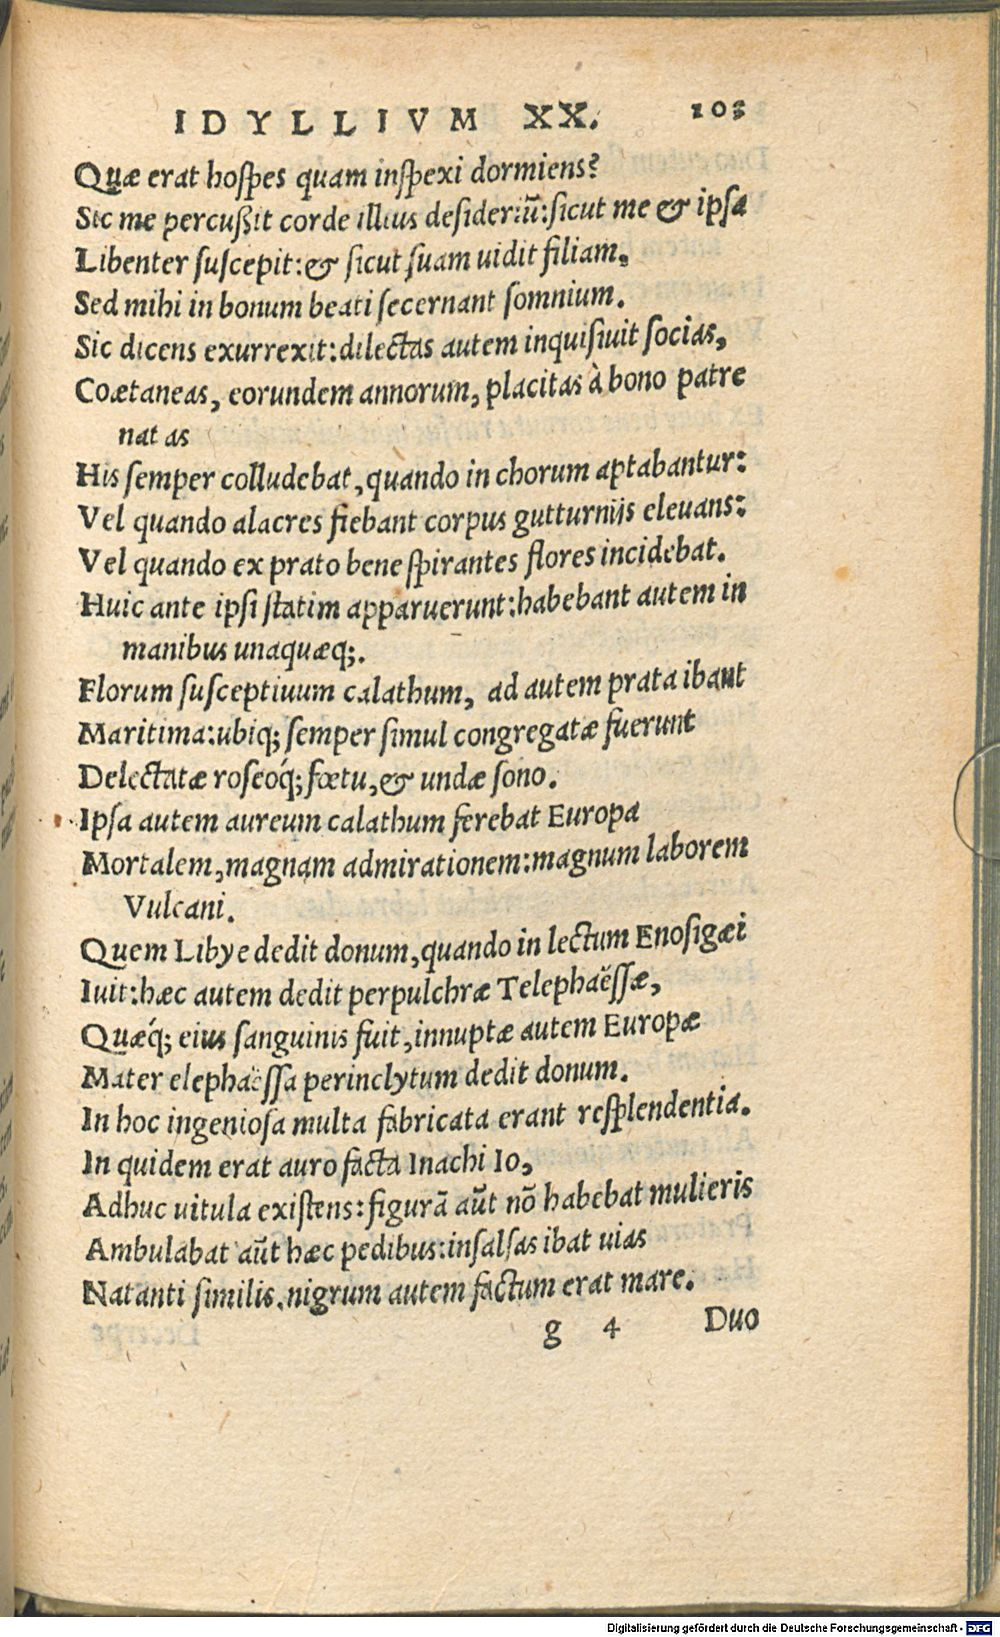 IDYLLIVM XX. 103
Quæ erat hoſpes quam inſpexi dormiens?
Sic me percußit corde illius deſideriũ:ſicut me & ipſa
Libenter ſuſcepit:& ſicut ſuam uidit filiam.
Sed mihi in bonum beati ſecernant ſomnium.
Sic dicens exurrexit:dilectas autem inquiſiuit ſocias,
Coætaneas, eorundem annorum, placitas à bono patre
natas
His ſemper colludebat,quando in chorum aptabantur:
Vel quando alacres fiebant corpus gutturnijs eleuans:
Vel quando ex prato bene ſpirantes flores incidebat.
Huic ante ipſi ſtatim apparuerunt:habebant autem in
manibus unaquæq;.
Florum ſuſceptiuum calathum, ad autem prata ibant
Maritima:ubiq; ſemper ſimul congregatæ fuerunt
Delectatæ roſeoq́; fœtu,& undæ ſono.
Ipſa autem aureum calathum ferebat Europa
Mortalem,magnam admirationem:magnum laborem
Vulcani.
Quem Libye dedit donum,quando in lectum Enoſigæi
Iuit:hæc autem dedit perpulchræ Telephaëſſæ,
Quæq́; eius ſanguinis fuit,innuptæ autem Europæ
Mater elephaëſſa perinclytum dedit donum.
In hoc ingenioſa multa fabricata erant reſplendentia.
In quidem erat auro facta Inachi Io,
Adhuc uitula exiſtens:figurã aũt nõ habebat mulieris
Ambulabat aũt hæc pedibus:inſalſas ibat uias
Natanti ſimilis.nigrum autem factum erat mare.
g 4 Duo
Digitalisierung gefördert durch die Deutsche Forschungsgemeinschaft - DFG